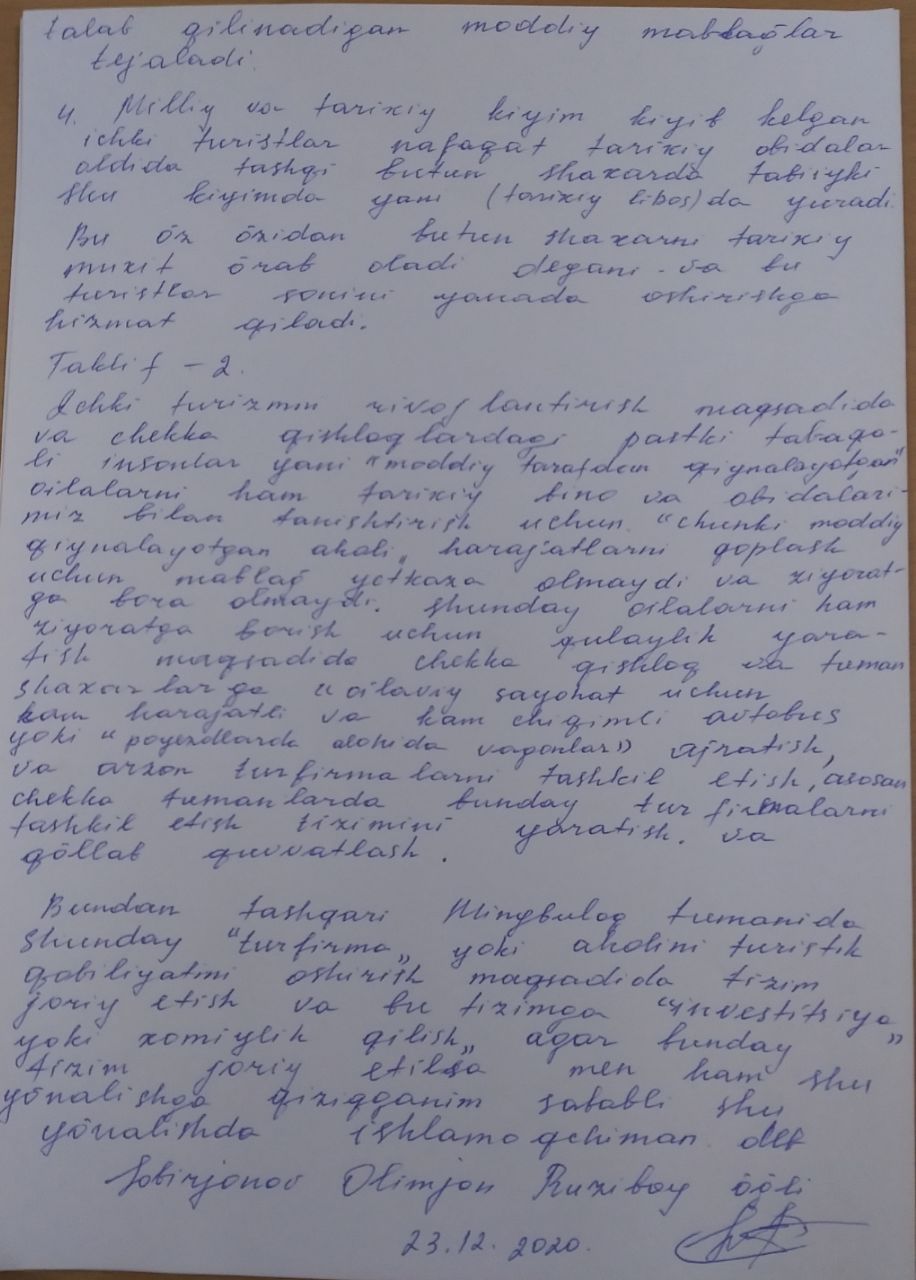 talab qilinadigan moddiy mablağlar
tejaladi.
4. Milliy va tarixiy kiyim kiyib kelgan
ichki turistlar nafaqat tarixiy obidalar
oldida tashqi butun shaxarda tabiiyki
shu kiyimda yani (tarixiy libos)da yuradi.
Bu öz özidan butun shaxarni tarixiy
muxit örab oladi degani. va bu
turistlar sonini yanada oshirishga
hizmat qiladi.
Taklif - 2.
Ichki turizmni rivojlantirish maqsadida
va chekka qishloqlardagi pastki tabaqa-
li insonlar yani "moddiy tarafdan qiynalayotgan"
oilalarni ham tarixiy bino va obidalari-
miz bilan tanishtirish uchun. "chunki moddiy
qiynalayotgan aholi„ harajatlarni qoplash
uchun mablağ yetkaza olmaydi va ziyorat-
ga bora olmaydi. shunday oilalarni ham
ziyoratga borish uchun qulaylik yara-
tish maqsadida chekka qishloq va tuman
shaxarlarga "oilaviy sayohat uchun
kam harajatli va kam chiqimli avtobus
yoki "poyezdlarda alohida vagonlar" ajratish,
va arzon turfirmalarni tashkil etish, asosan
chekka tumanlarda bunday turfirmalarni
tashkil etish tizimini yaratish. va
qöllab quvvatlash.
Bundan tashqari Mingbuloq tumanida
shunday "turfirma„ yoki aholini turistik
qobiliyatini oshirish maqsadida tizim
joriy etish va bu tizimga "investitsiya
yoki xomiylik qilish„ agar bunday "
tizim joriy etilsa men ham shu
yönalishga qiziqqanim sababli shu
yönalishda ishlamoqchiman. deb
Sobirjonov Olimjon Ruziboy öğli
23.12.2020.